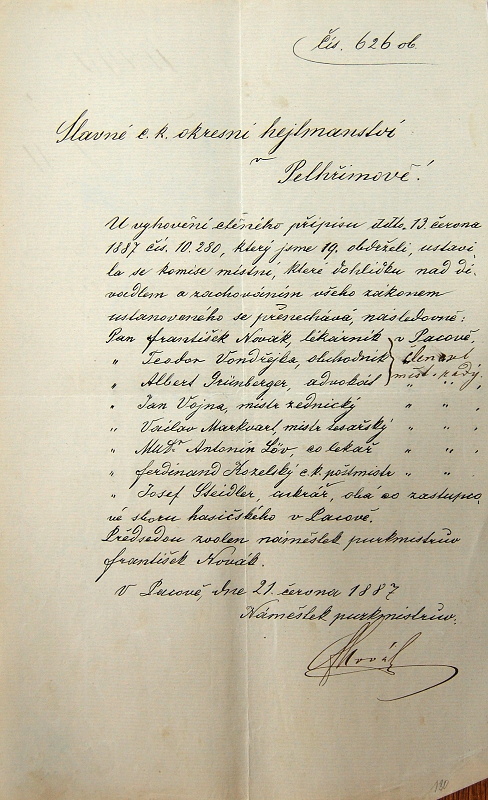 Čís. 626 ob.
Slavné c. k. okresní hejtmanství
v
Pelhřimově!
U vyhovění ctěného přípisu ddto. 13. června
1887 čís. 10.280, který jsme 19. obdrželi, ustavi-
la se komise místní, které dohlídku nad di-
vadlem a zachováním všeho zákonem
ustanoveného se přenechává, následovně:
Pan František Novák, lékárník v Pacově,
" Teodor Vondrejka, obchodník členové
" Albert Grünberger, advokát měst. rady, " " ,
" Jan Vojna, mistr zednický " " ,
" Václav Markvart, mistr tesařský " " ,
" MUDr Antonín Löv, co lékař " " ,
" Ferdinand Kozelský c. k. poštmistr " " ,
" Josef Steidler, cukrář, oba co zástupco-
vé sboru hasičského v Pacově.
Předsedou zvolen náměstek purkmistrův
František Novák.
V Pacově, dne 21. června 1887
Náměstek purkmistrův.
Novák
120